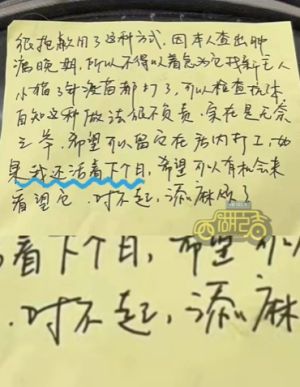 很抱歉用了这种方式，因本人查出肿
瘤晚期，所以不得以着急为它找新主人
小猫3针疫苗都打了，可以检查抗体
自知这种做法很不负责，实在是无奈
之举，希望可以留它在店内打工，如
果我还活着下个月，希望可以有机会来
看望它，对不起，添麻烦了
着下个月，希望可以
，对不起，添麻